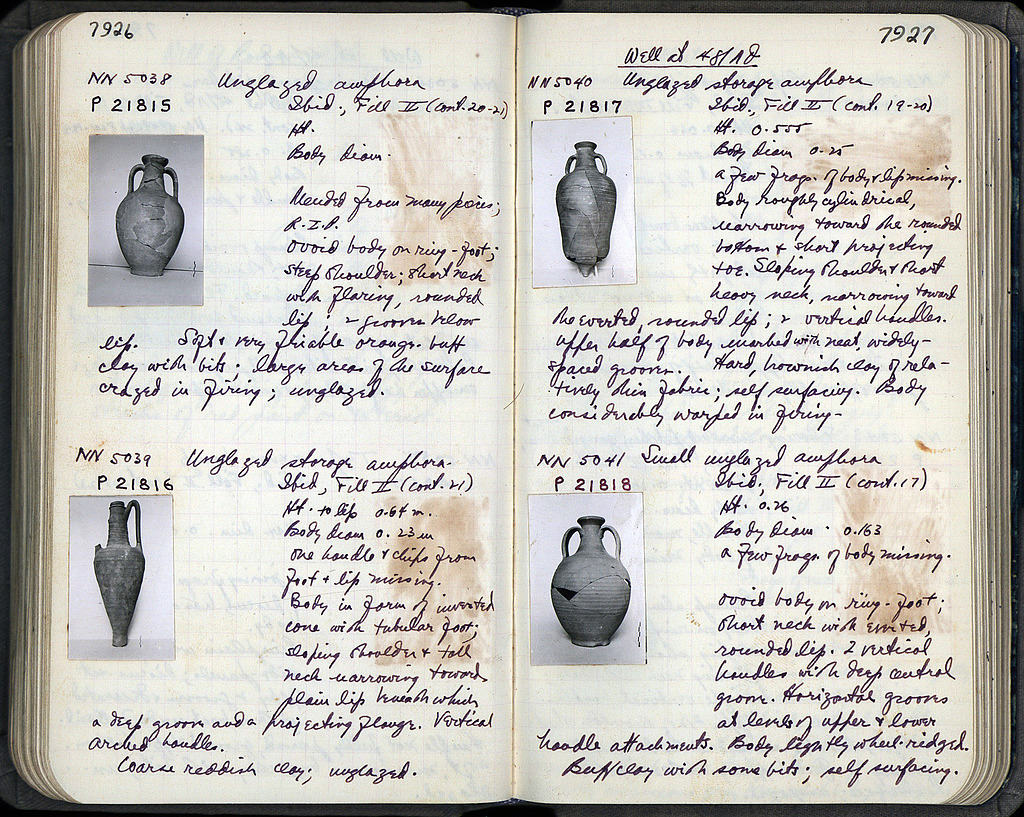 7926
NN 5038 Unglazed amphora
P 21815 Ibid., Fill II (cont. 20-21)
Ht.
Body diam.
Mended from many pieces;
R.I.P.
Ovoid body on ring-foot;
steep shoulder; short neck
with flaring, rounded
lip; 2 grooves below
lip. Soft & very friable orange-buff
clay with bits; large areas of the surface
crazed in firing; unglazed.
NN 5039 Unglazed storage amphora
P 21816 Ibid, Fill II (cont. 21)
Ht. to lip 0.64 m.
Body diam 0.23 m
One handle & chips from
foot & lip missing.
Body in form of inverted
cone with tubular foot;
sloping shoulder & tall
neck narrowing toward
plain lip beneath which
a deep groove and a projecting flange. Vertical
arched handles.
Coarse reddish clay; unglazed.
7927
Well at 48/
NN 5040 Unglazed storage amphora
P 21817 Ibid., Fill II (cont. 19-20)
Ht. 0.555
Body diam 0.25
A few frags. of body & lip missing.
Body roughly cylindrical,
narrowing toward the rounded
bottom & short projecting
toe. Sloping shoulder & short
heavy neck, narrowing toward
the everted, rounded lip; 2 vertical handles.
Upper half of body marked with neat, widely-
spaced grooves. Hard, brownish clay of rela-
tively thin fabric; self surfacing. Body
considerably warped in firing-
NN 5041 Small unglazed amphora
P 21818 Ibid., Fill II (cont. 17)
Ht. 0.26
Body Diam. 0.163
A few frags. of body missing.
Ovoid body on ring-foot;
short neck with everted,
rounded lip. 2 vertical
handles with deep central
groove. Horizontal grooves
at levels of upper & lower
handle attachments. Body lightly wheel-ridged.
Buff clay with some bits; self surfacing.